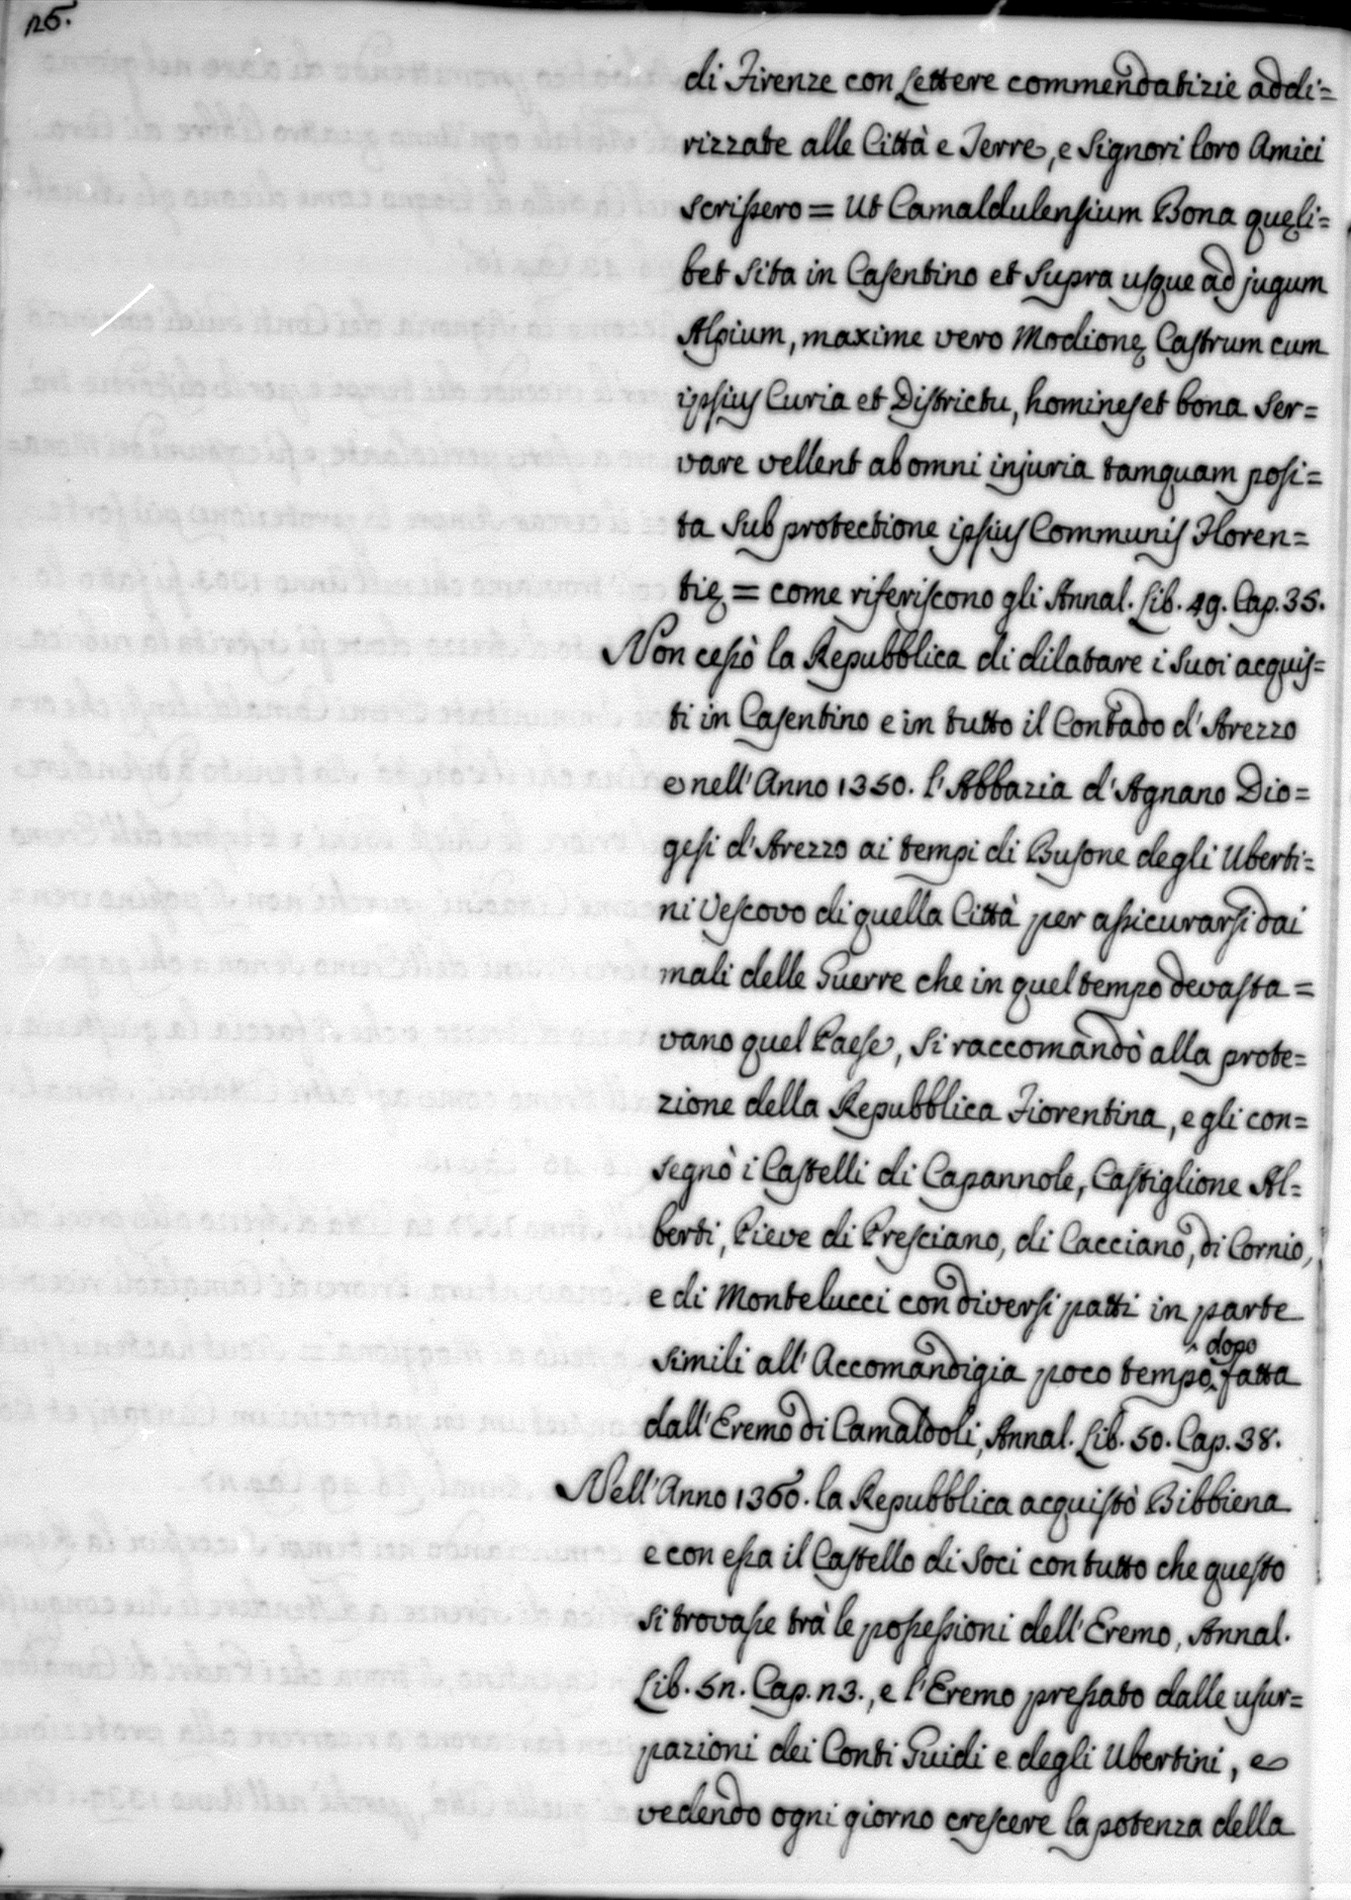 26.
di Firenze con Lettere commendatizie addi=
rizzate alle Città e Terre, e Signori loro Amici
scrissero = Ut Camaldulensium Bona quęli=
bet sita in Casentino et supra usque ad jugum
Alpium, maxime vero Modionę Castrum cum
ipsius Curia et Districtu, homines et bona ser=
vare vellent ab omni injuria tamquam posi=
ta sub protectione ipsius Communis Floren=
tię = come riferiscono gli Annal. Lib. 49. Cap. 35.
Non cessò la Repubblica di dilatare i suoi acquis=
ti in Casentino e in tutto il Contado d'Arezzo
e nell'Anno 1350. l'Abbazia d'Agnano Dio=
gesi d'Arezzo ai tempi di Busone degli Uberti=
ni Vescovo di quella Città per assicurarsi dai
mali delle Guerre che in quel tempo devasta=
vano quel Paese, si raccomandò alla prote=
zione della Repubblica Fiorentina, e gli con=
segnò i Castelli di Capannole, Castiglione Al=
berti, Pieve di Presciano, di Cacciano, di Cornio,
e di Montelucci con diversi patti in parte
simili all'Accomandigia poco tempo dopo fatta
dall'Eremo di Camaldoli, Annal. Lib. 50. Cap. 38.
Nell'Anno 1360. la Repubblica acquistò Bibbiena
e con essa il Castello di Soci con tutto che questo
si trovasse trà le possessioni dell'Eremo, Annal.
Lib. 52. Cap. 23., e l'Eremo pressato dalle usur=
pazioni dei Conti Guidi e degli Ubertini, e
vedendo ogni giorno crescere la potenza della